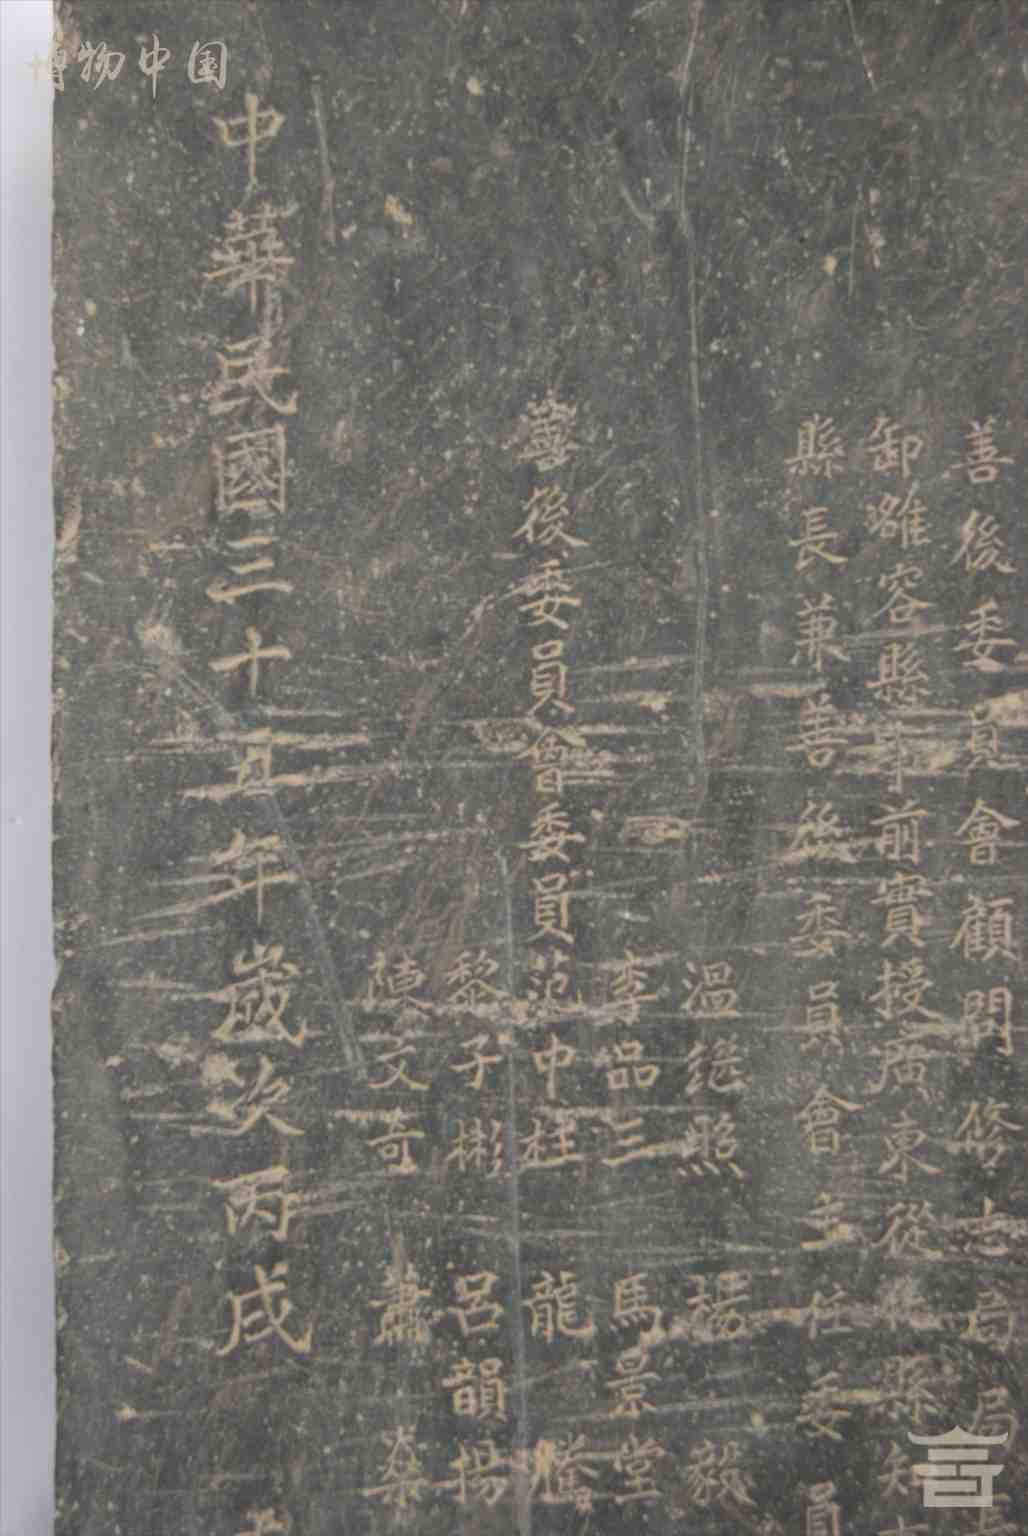 善後委員會顧問修志局局長
卸雒容縣事前實授廣東從化縣知
縣長兼善後委員會主任委員
溫繼照 楊毅
李品三 馬景堂
善後委員會委員范中柱 龍騰
黎子彬 呂韻揚
陳文奇 蕭燊
中華民國三十五年歲次丙戌
博物中国